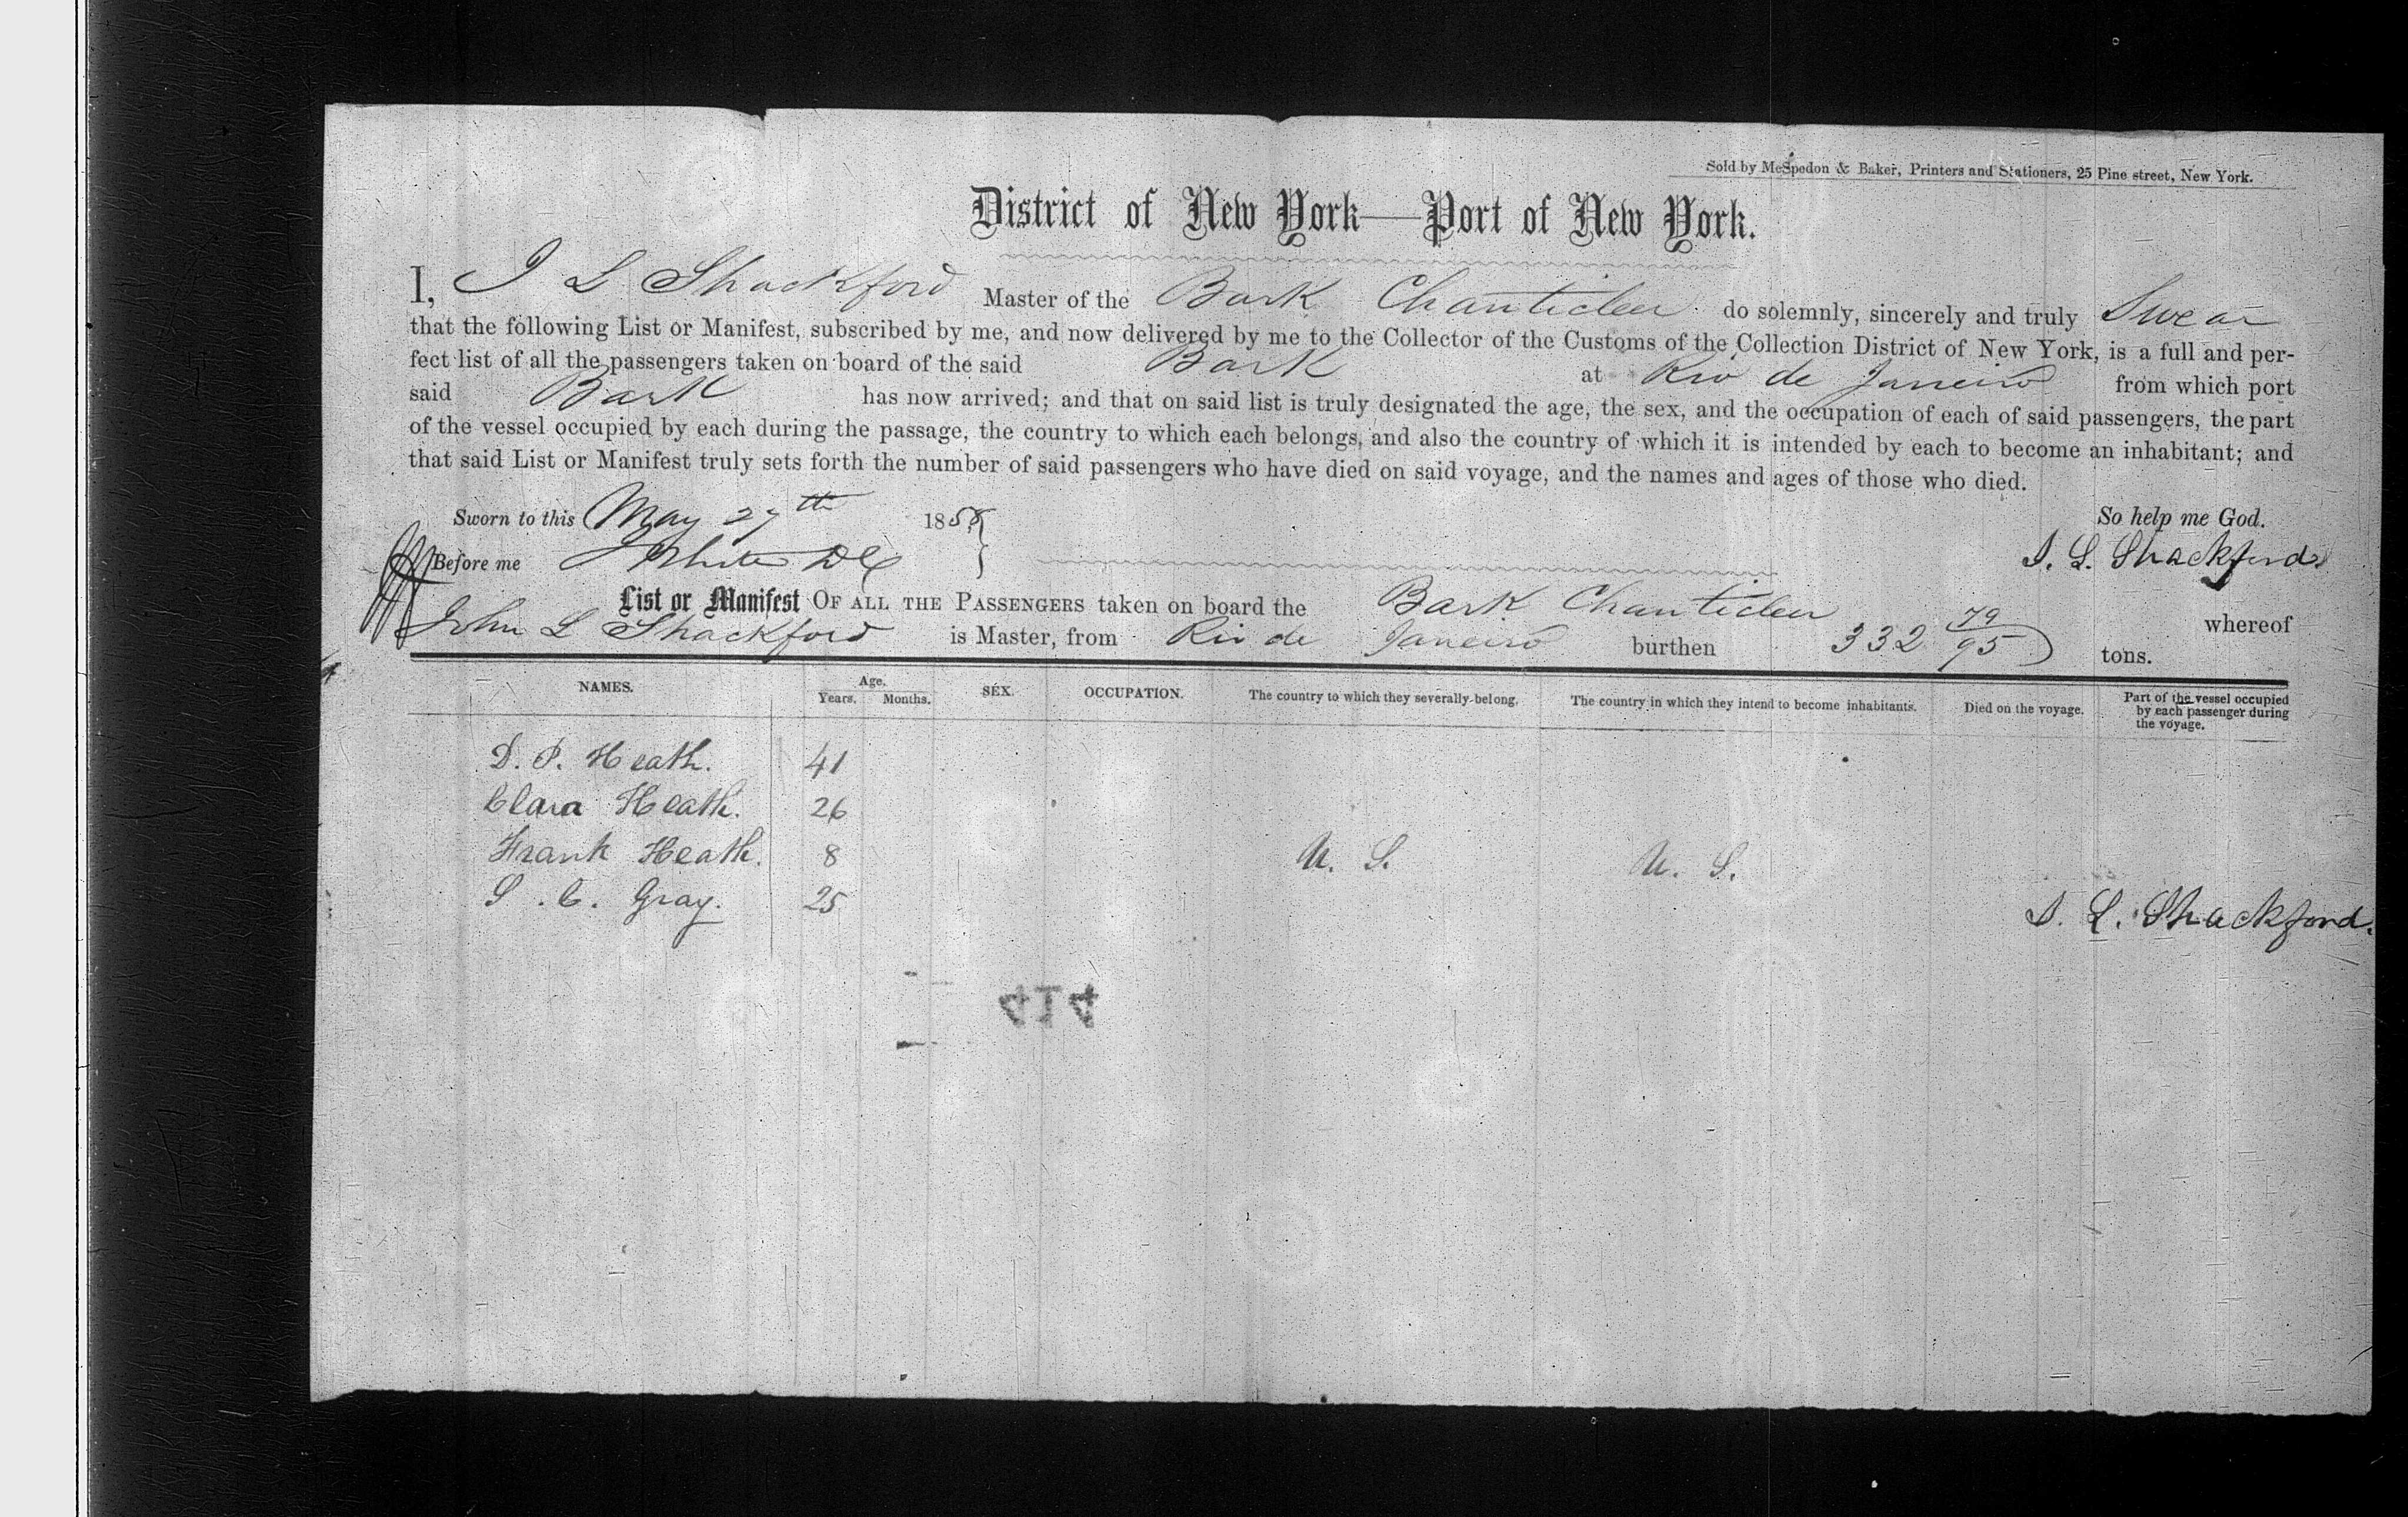 Sold by McSpedon & Baker, Printers and Stationers, 25 Pine street, New York.
District of New York—Port of New York.
I, J L Shackford Master of the Bark Chanticleer do solemnly, sincerely and truly Swear
that the following List or Manifest, subscribed by me, and now delivered by me to the Collector of the Customs of the Collection District of New York, is a full and per-
fect list of all the passengers taken on board of the said Bark at Rio de Janeiro from which port
said Bark has now arrived; and that on said list is truly designated the age, the sex, and the occupation of each of said passengers, the part
of the vessel occupied by each during the passage, the country to which each belongs, and also the country of which it is intended by each to become an inhabitant; and
that said List or Manifest truly sets forth the number of said passengers who have died on said voyage, and the names and ages of those who died.
Sworn to this May 27th 1858 So help me God.
Before me J. L. Shackford
List or Manifest OF ALL THE PASSENGERS taken on board the Bark Chanticleer whereof
John L Shackford is Master, from Rio de Janeiro burthen 332 79/95 tons.
NAMES. Age. Years. Months. SEX. OCCUPATION. The country to which they severally belong. The country in which they intend to become inhabitants. Died on the voyage. Part of the vessel occupied by each passenger during the voyage.
D. P. Heath. 41
Clara Heath. 26
Frank Heath. 8 U. S. U. S.
S. C. Gray. 25
J. L. Shackford.
414